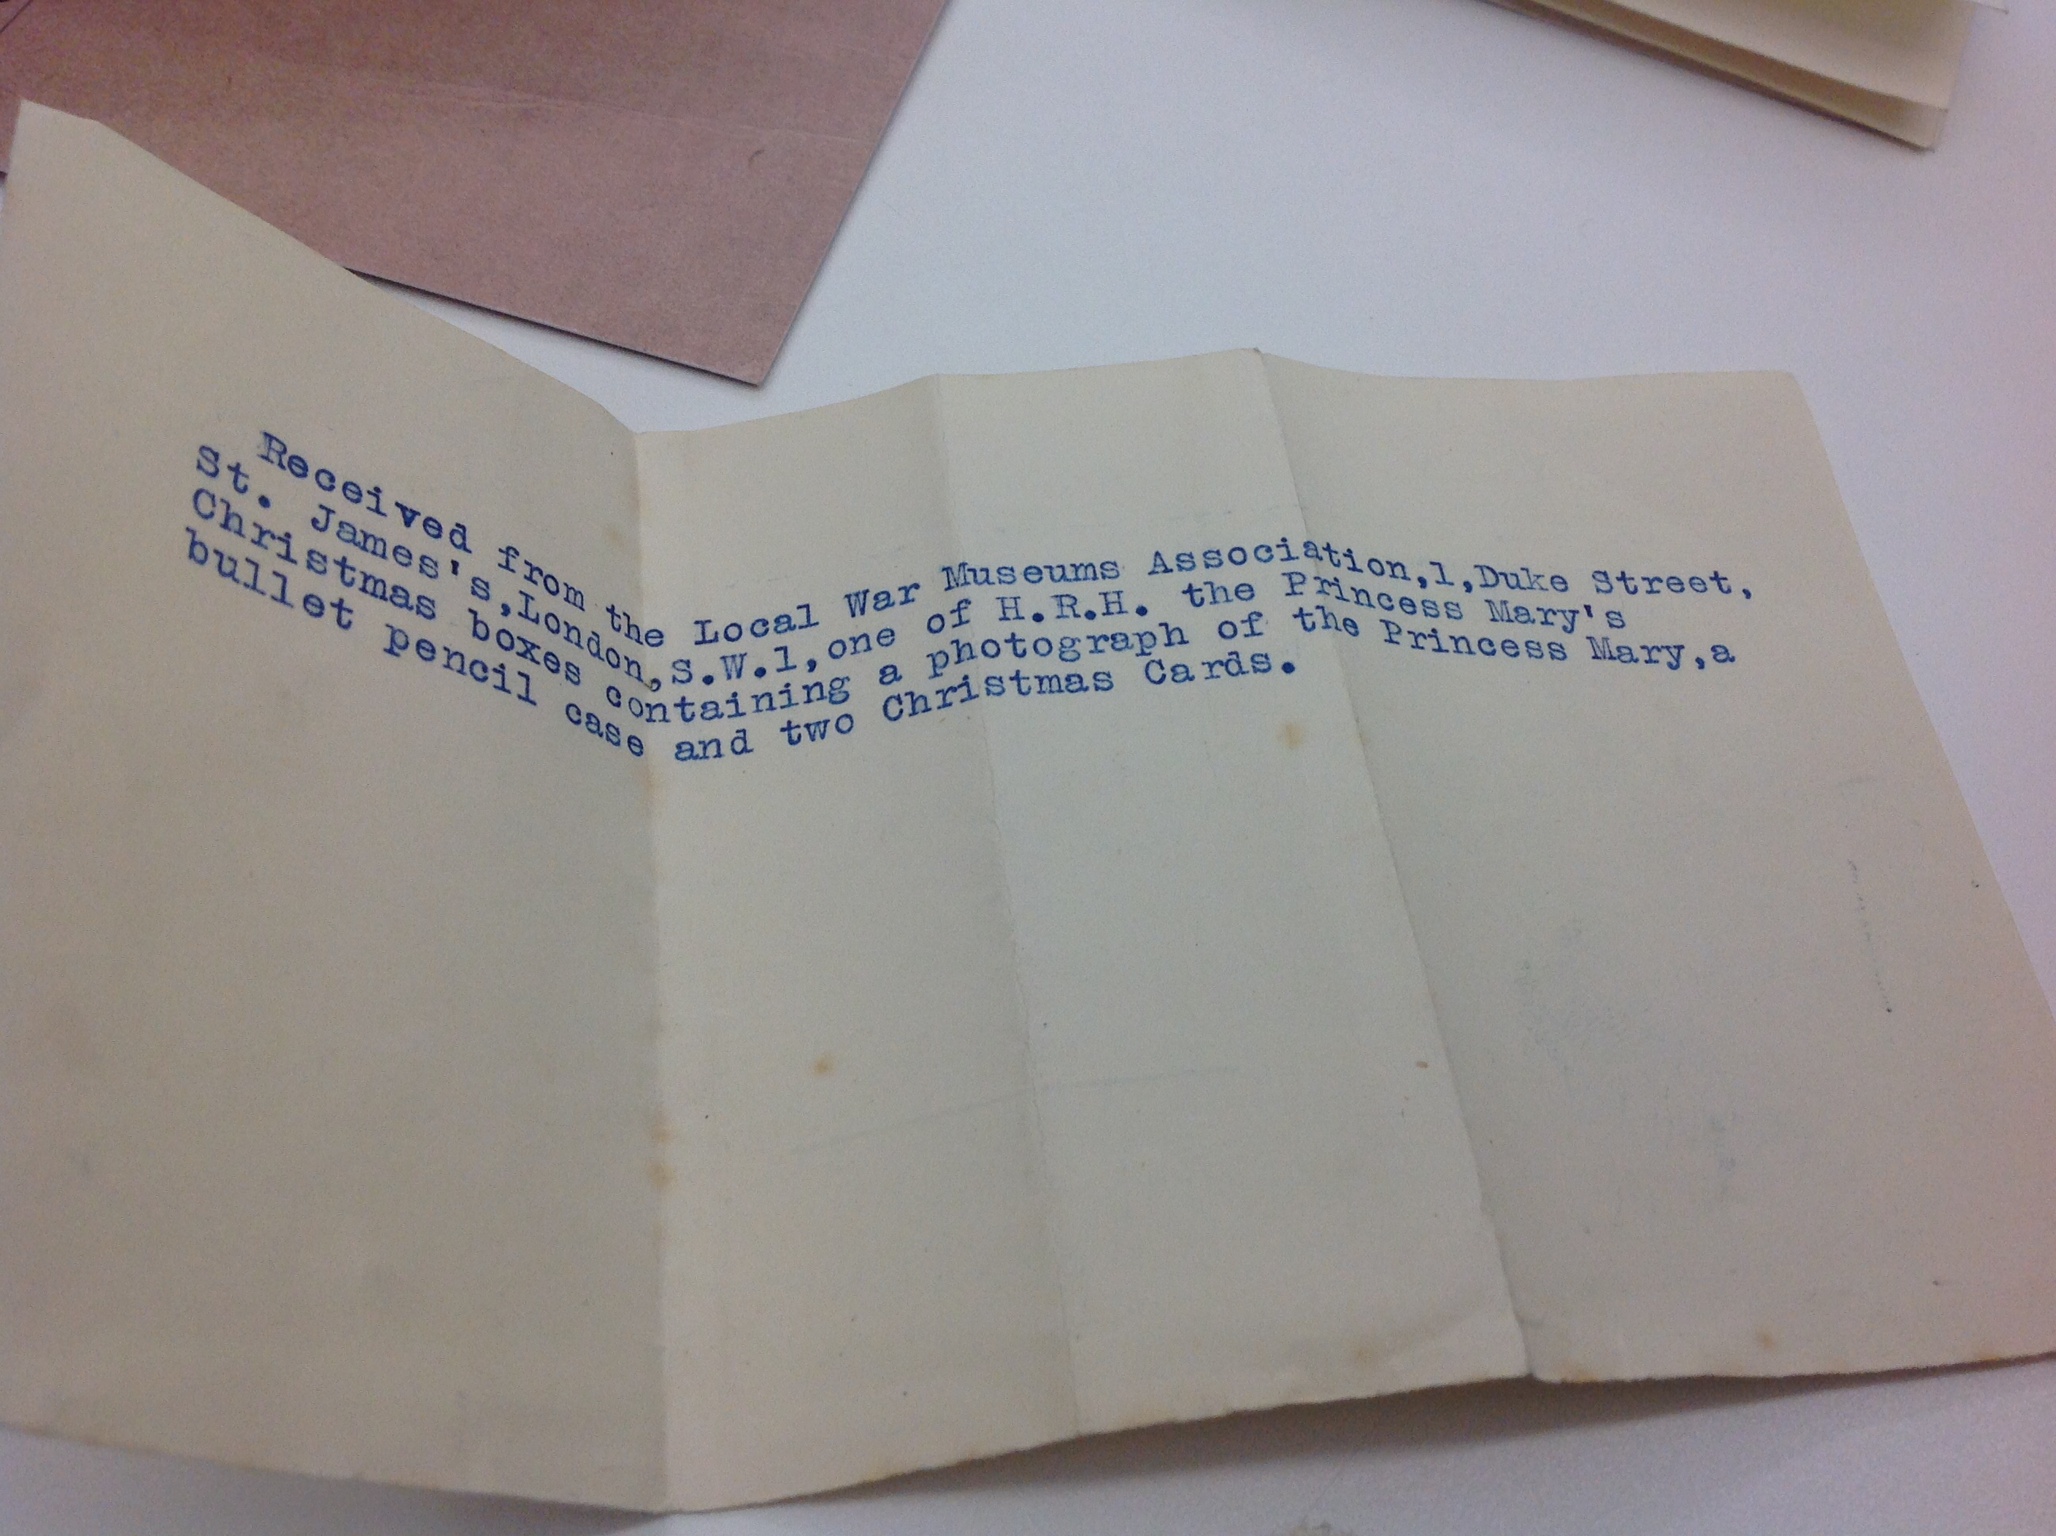 Received from the Local War Museums Association,1,Duke Street,
St. James's,London,S.W.1,one of H.R.H. the Princess Mary's
Christmas boxes containing a photograph of the Princess Mary,a
bullet pencil case and two Christmas Cards.